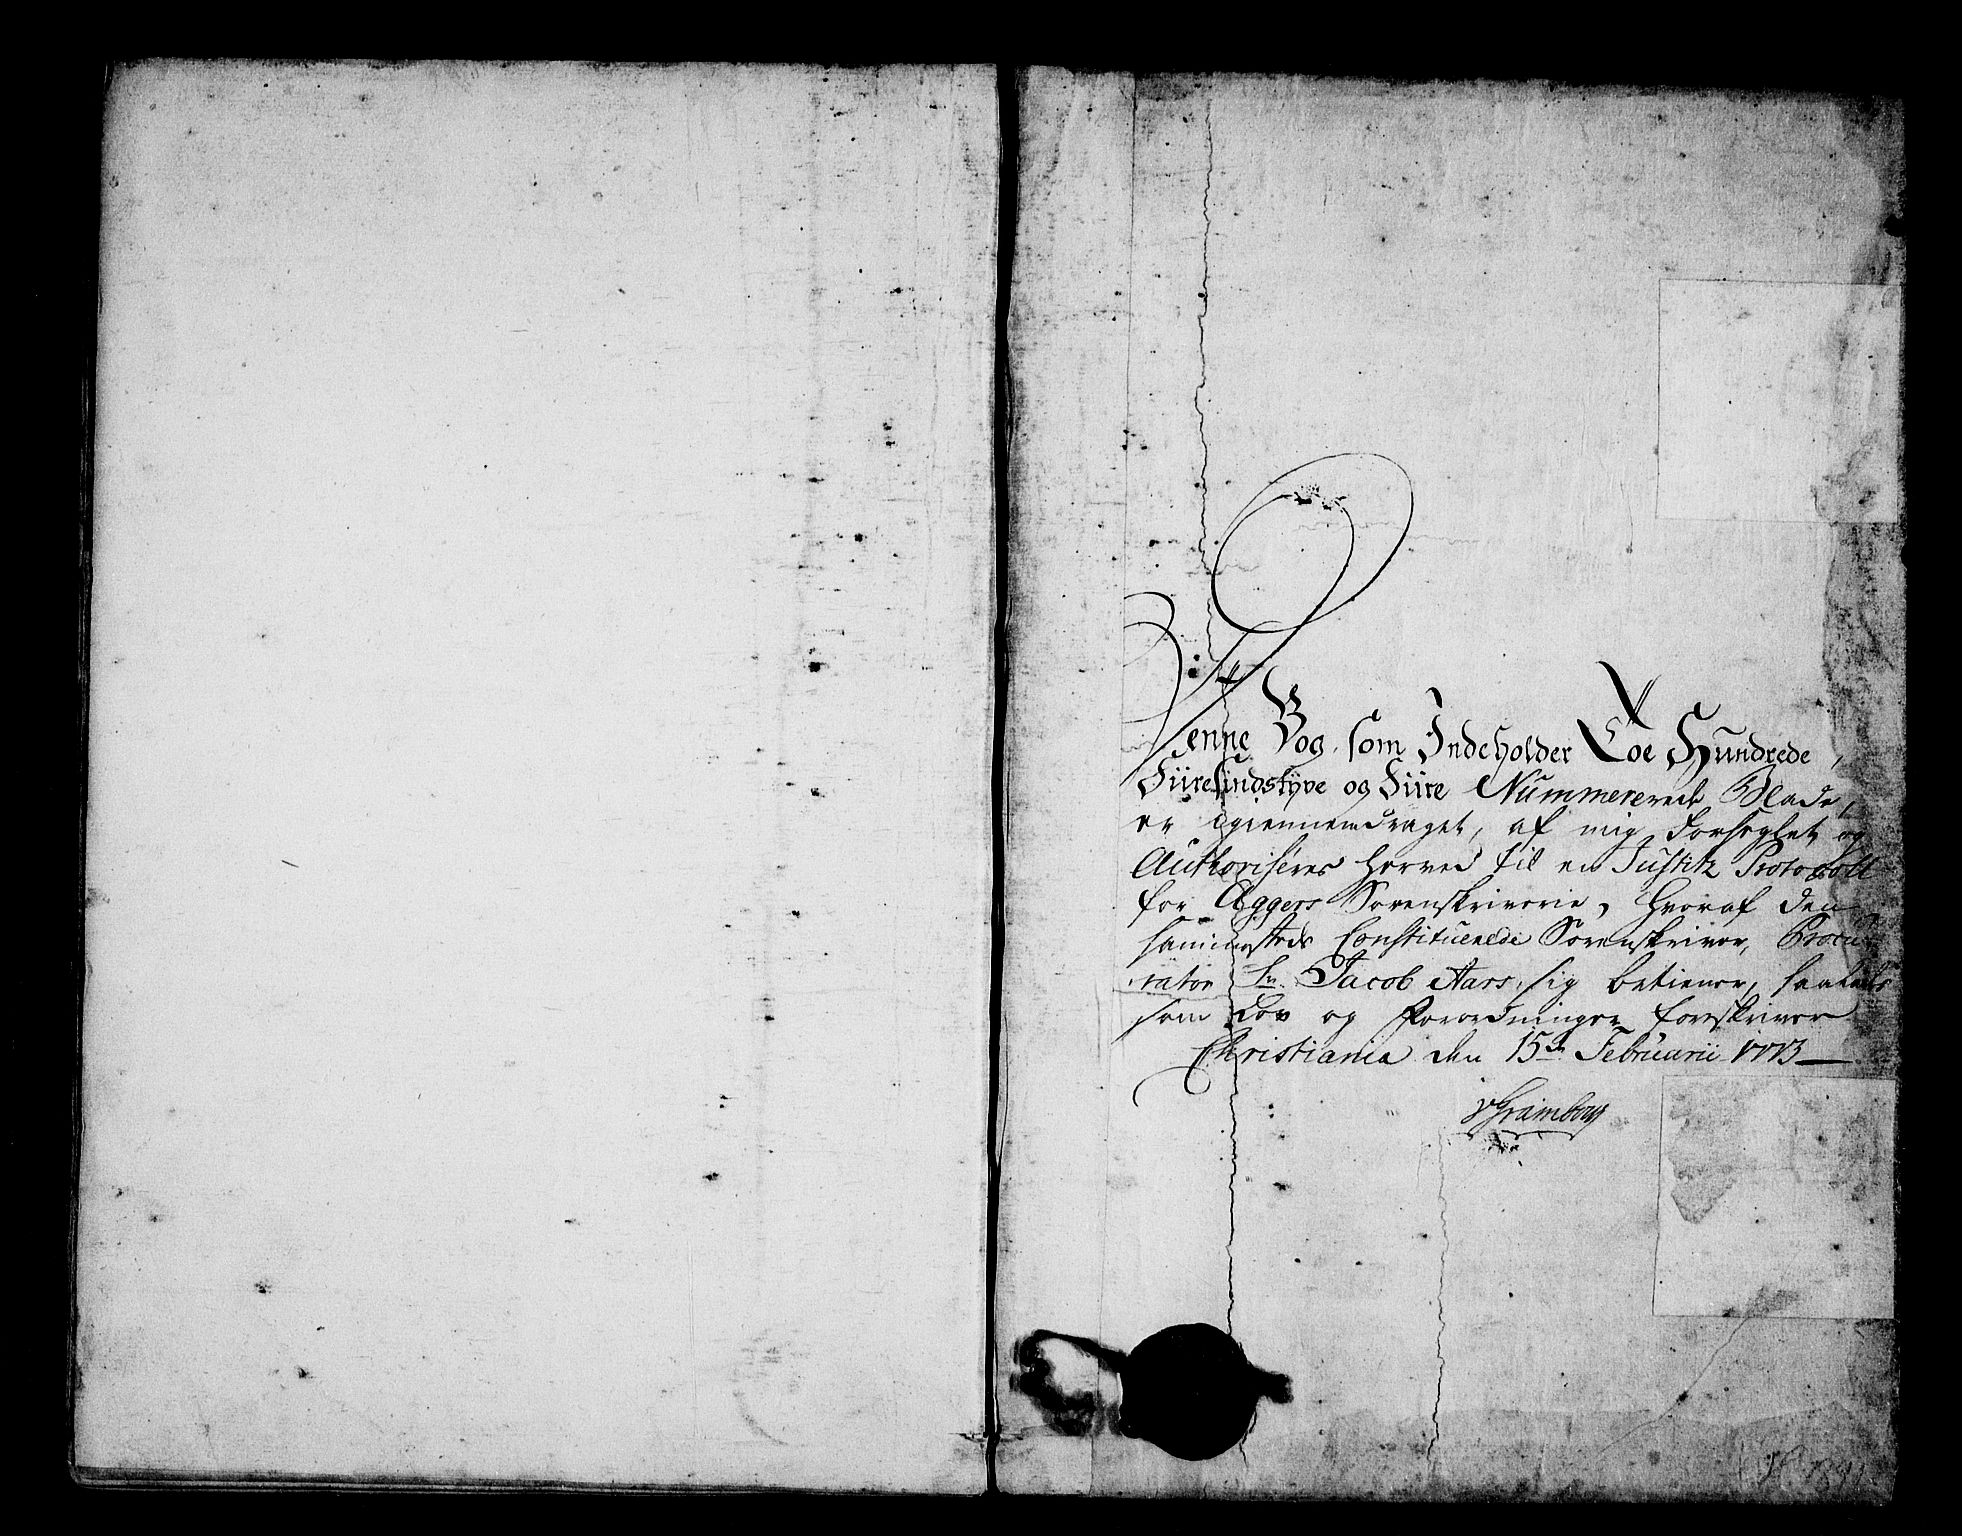 Denne Bog, som Indeholder Toe Hundrede,
Fiiresindstÿve og Fiire Nummererede Blade,
er igiennemdraget, af mig Forseglet og
Authoriseres herved til en Justitz Protocoll
for Aggers Sorenskriverie, hvoraf den
sammesteds Constituerede Sorenskriver, Procu-
rator Sr. Jacob Aars, sig betiener, saaledes
som Lov og Forordninger foreskriver
Christiania den 15de Februarii 1773